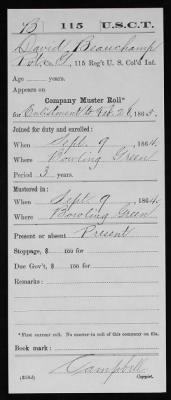 B | 115 | U.S.C.T.
David Beauchamp
Co. , 115 Reg't U. S. Col'd Inf.
Age years.
Appears on
Company Muster Roll*
for Enlistment to Feb. 28, 1865.
Joined for duty and enrolled:
When Sept. 9, 1864.
Where Bowling Green
Period 3 years.
Mustered in:
When Sept. 9, 1864.
Where Bowling Green
Present or absent Present
Stoppage, $ 100 for
Due Gov't, $ 100 for
Remarks:
*First current roll. No muster-in roll of this comment on file.
Book mark:
Campbell
(358d) Copyist.